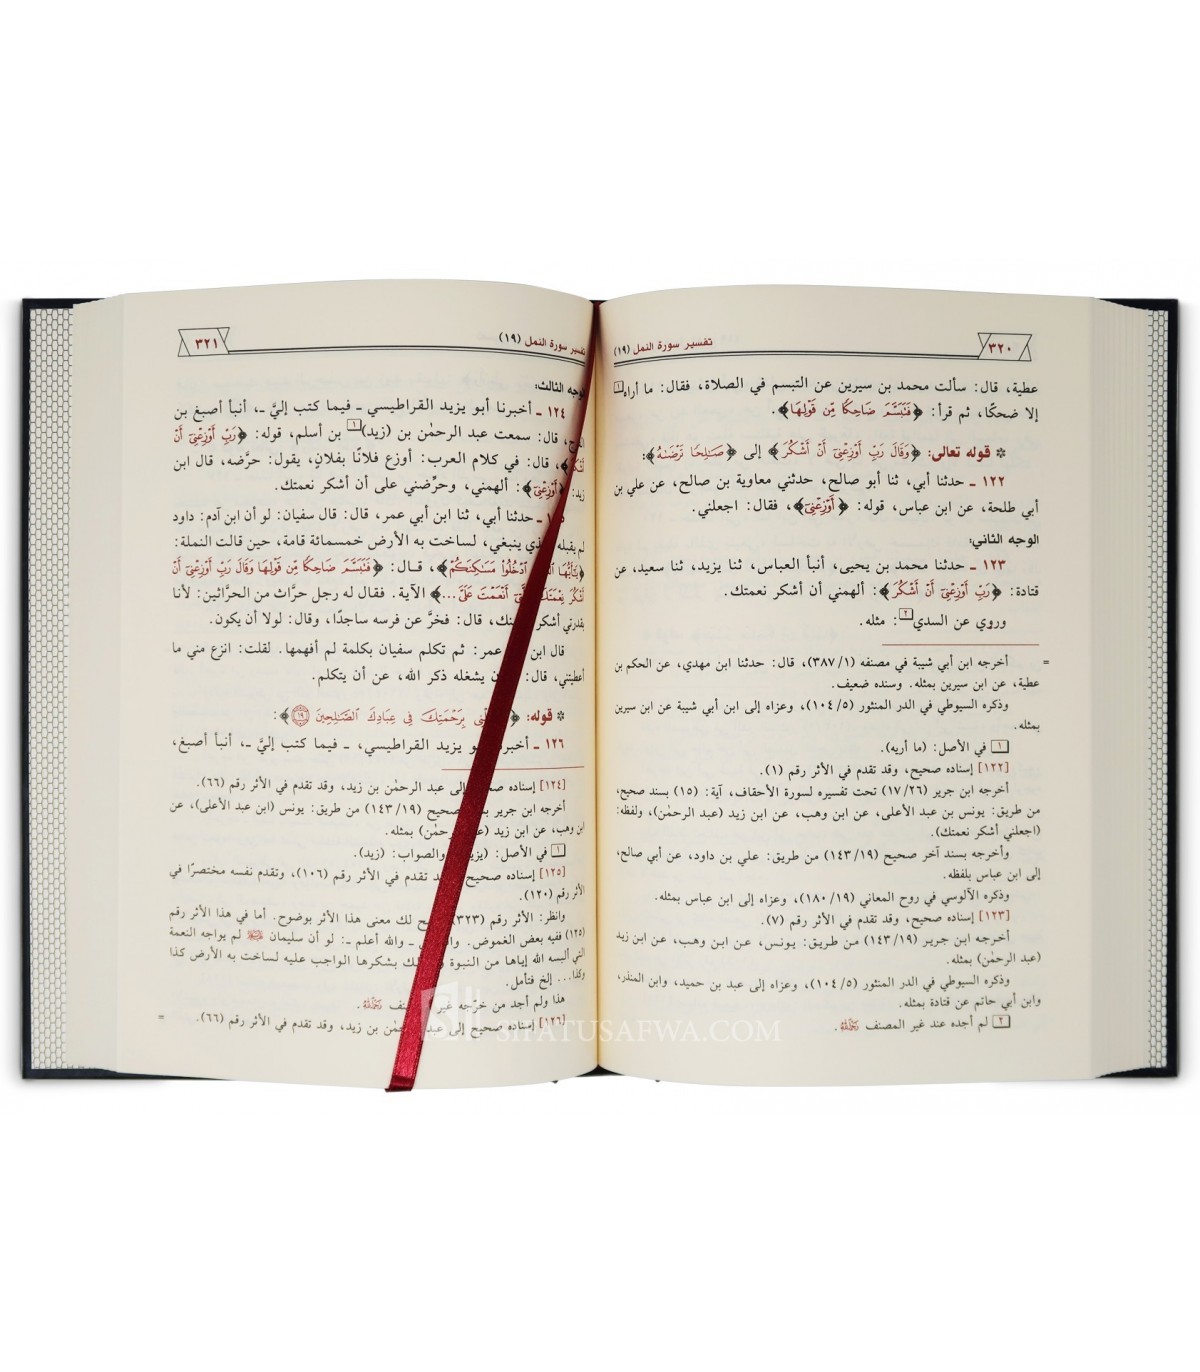 ٣٢٠
تفسير سورة النمل (١٩)
عطية، قال: سألت محمد بن سيرين عن التبسم في الصلاة، فقال: ما أراه١
إلا ضحكًا، ثم قرأ: ﴿فَتَبَسَّمَ ضَاحِكًا مِّن قَوْلِهَا﴾.
* قوله تعالى: ﴿وَقَالَ رَبِّ أَوْزِعْنِىٓ أَنْ أَشْكُرَ﴾ إلى ﴿صَـٰلِحًا تَرْضَىٰهُ﴾:
١٢٢ ـ حدثنا أبي، ثنا أبو صالح، حدثني معاوية بن صالح، عن علي بن
أبي طلحة، عن ابن عباس، قوله: ﴿أَوْزِعْنِىٓ﴾، فقال: اجعلني.
الوجه الثاني:
١٢٣ ـ حدثنا محمد بن يحيى، أنبأ العباس، ثنا يزيد، ثنا سعيد، عن
قتادة: ﴿رَبِّ أَوْزِعْنِىٓ أَنْ أَشْكُرَ﴾: ألهمني أن أشكر نعمتك.
وروي عن السدي٢: مثله.
= أخرجه ابن أبي شيبة في مصنفه (٣٨٧/١)، قال: حدثنا ابن مهدي، عن الحكم بن
عطية، عن ابن سيرين بمثله. وسنده ضعيف.
وذكره السيوطي في الدر المنثور (١٠٤/٥)، وعزاه إلى ابن أبي شيبة عن ابن سيرين
بمثله.
١ في الأصل: (ما أريه).
[١٢٢] إسناده صحيح، وقد تقدم في الأثر رقم (١).
أخرجه ابن جرير (١٧/٢٦) تحت تفسيره لسورة الأحقاف، آية: (١٥) بسند صحيح،
من طريق: يونس بن عبد الأعلى، عن ابن وهب، عن ابن زيد (عبد الرحمٰن)، ولفظه:
(اجعلني أشكر نعمتك).
وأخرجه بسند آخر صحيح (١٤٣/١٩) من طريق: علي بن داود، عن أبي صالح،
إلى ابن عباس بلفظه.
وذكره الآلوسي في روح المعاني (١٨٠/١٩)، وعزاه إلى ابن عباس بمثله.
[١٢٣] إسناده صحيح، وقد تقدم في الأثر رقم (٧).
أخرجه ابن جرير (١٤٣/١٩) من طريق: يونس، عن ابن وهب، عن ابن زيد
(عبد الرحمٰن) بمثله.
وذكره السيوطي في الدر المنثور (١٠٤/٥)، وعزاه إلى عبد بن حميد، وابن المنذر،
وابن أبي حاتم عن قتادة بمثله.
٢ لم أجده عند غير المصنف رَحِمَهُ ٱللَّهُ.
تفسير سورة النمل (١٩)
٣٢١
الوجه الثالث:
١٢٤ ـ أخبرنا أبو يزيد القراطيسي ـ فيما كتب إليَّ ـ، أنبأ أصبغ بن
قال: سمعت عبد الرحمٰن بن (زيد)١ بن أسلم، قوله: ﴿رَبِّ أَوْزِعْنِىٓ أَنْ
أَشْكُرَ﴾، قال: في كلام العرب: أوزع فلانًا بفلانٍ، يقول: حرَّضه، قال ابن
زيد: ﴿أَوْزِعْنِىٓ﴾: ألهمني، وحرِّضني على أن أشكر نعمتك.
ـ حدثنا أبي، ثنا ابن أبي عمر، قال: قال سفيان: لو أن ابن آدم: داود
لم يقبله ينبغي، لساخت به الأرض خمسمائة قامة، حين قالت النملة:
﴿يَـٰٓأَيُّهَا ٱدْخُلُوا۟ مَسَـٰكِنَكُمْ﴾، قـال: ﴿فَتَبَسَّمَ ضَاحِكًا مِّن قَوْلِهَا وَقَالَ رَبِّ أَوْزِعْنِىٓ أَنْ
أَشْكُرَ نِعْمَتَكَ أَنْعَمْتَ عَلَىَّ ...﴾ الآية. فقال له رجل حرَّاث من الحرَّاثين: لأنا
بقدرتي أشكر قال: فخرَّ عن فرسه ساجدًا، وقال: لولا أن يكون.
قال ابن عمر: ثم تكلم سفيان بكلمة لم أفهمها. لقلت: انزع مني ما
أعطيتني، قال: يشغله ذكر الله، عن أن يتكلم.
* قوله: ﴿ بِرَحْمَتِكَ فِى عِبَادِكَ ٱلصَّـٰلِحِينَ ١٩﴾:
١٢٦ ـ أخبرنا يزيد القراطيسي، ـ فيما كتب إليَّ ـ، أنبأ أصبغ،
[١٢٤] إسناده إلى عبد الرحمٰن بن زيد، وقد تقدم في الأثر رقم (٦٦).
أخرجه ابن جرير صحيح (١٤٣/١٩) من طريق: يونس (ابن عبد الأعلى)، عن
ابن وهب، عن ابن زيد (عبد الرحمٰن) بمثله.
١ في الأصل: والصواب: (زيد).
[١٢٥] إسناده صحيح تقدم في الأثر رقم (١٠٦)، وتقدم نفسه مختصرًا في
الأثر رقم (١٢٠).
وانظر: الأثر رقم (٣٢٣) لك معنى هذا الأثر بوضوح. أما في هذا الأثر رقم
(١٢٥) ففيه بعض الغموض. ـ والله أعلم ـ: لو أن سليمان لم يواجه النعمة
التي ألبسه الله إياها من النبوة بشكرها الواجب عليه لساخت به الأرض كذا
وكذا... إلخ فتأمل.
هذا ولم أجد من خرّجه غير المصنف رَحِمَهُ ٱللَّهُ.
[١٢٦] إسناده صحيح إلى عبد الرحمٰن بن زيد، وقد تقدم في الأثر رقم (٦٦). =
SIFATUSAFWA.COM